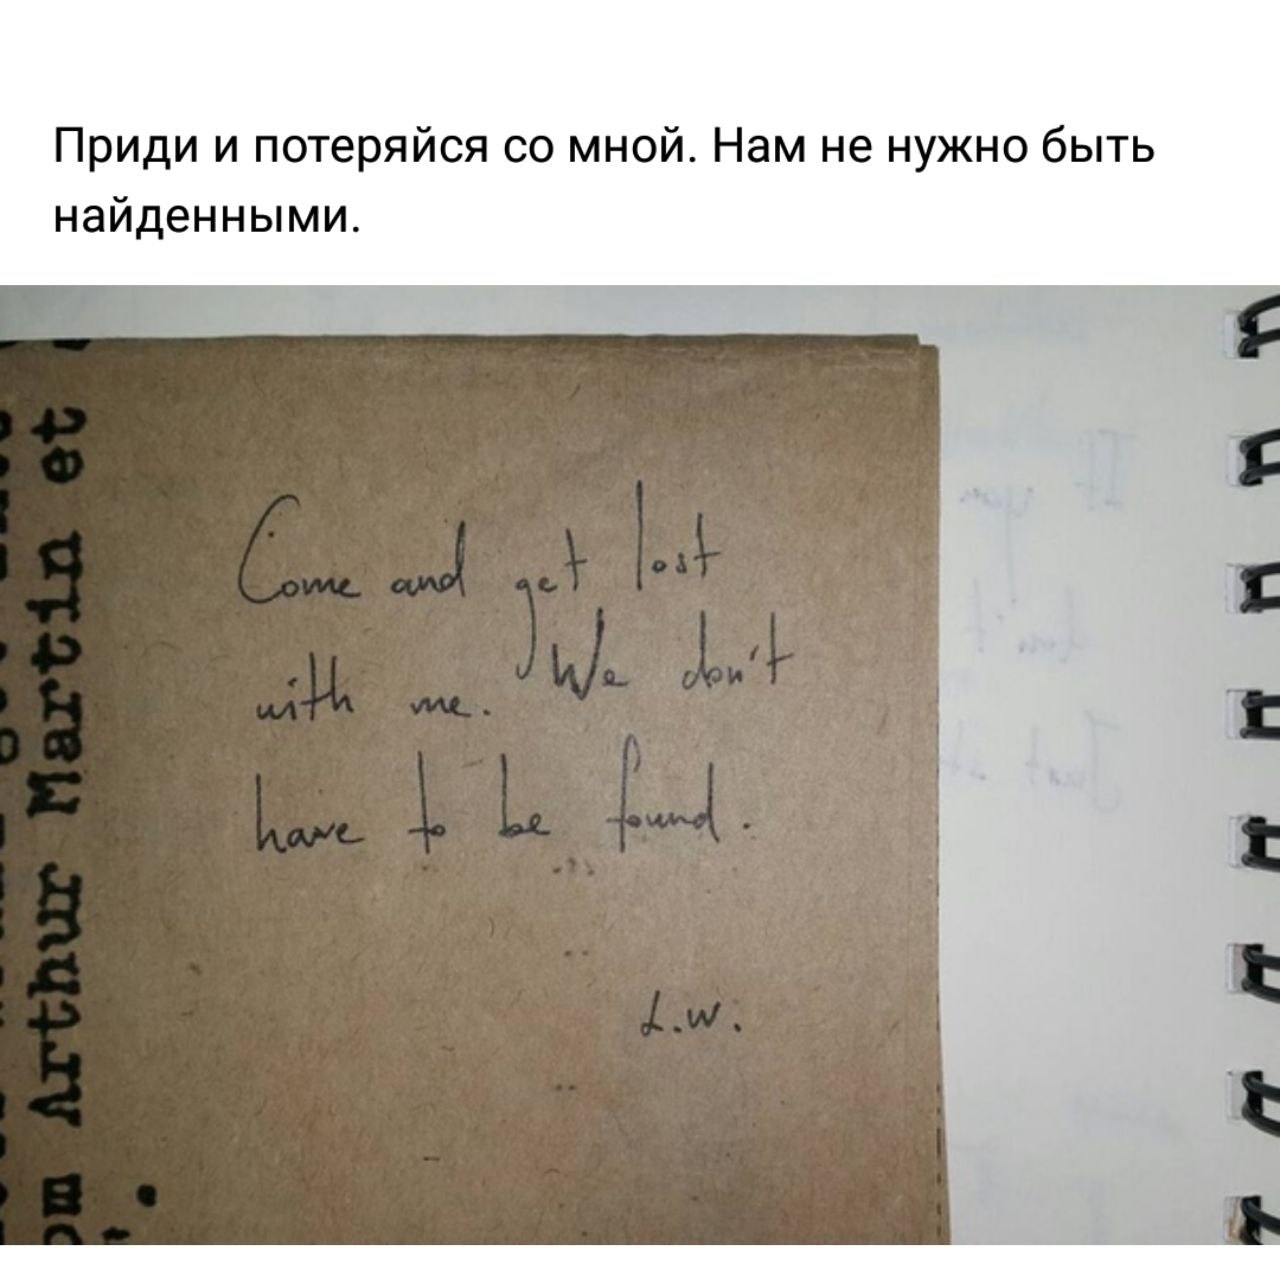 Приди и потеряйся со мной. Нам не нужно быть
найденными.
Come and get lost
with me. We don't
have to be found.
L.W.
Arthur Martin et